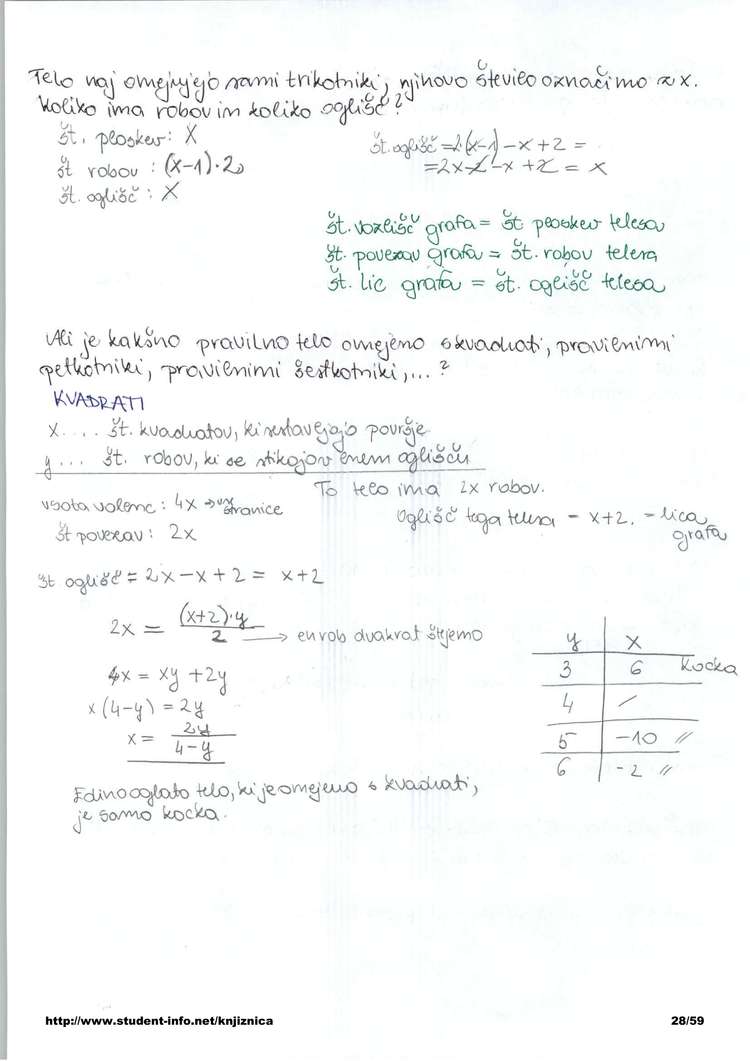 Telo naj omejujejo sami trikotniki, njihovo število označimo z x.
Koliko ima robov in koliko oglišč?
Št. ploskev: X
Št robov : (x-1)·2
Št. oglišč : X
Št. oglišč = 2·(x-1) - x + 2 =
= 2x - 2 - x + 2 = x
Št. vozlišč grafa = Št. ploskev telesa
Št. povezav grafa = Št. robov telesa
Št. lic grafa = Št. oglišč telesa
Ali je kakšno pravilno telo omejeno s kvadrati, pravilnimi
petkotniki, pravilnimi šestkotniki, ... ?
KVADRATI
x.... Št. kvadratov, ki sestavljajo površje
y ... Št. robov, ki se stikajo v enem oglišču
To telo ima 2x robov.
vsota valenc: 4x → vse stranice
Oglišč tega telesa = x+2. - lica grafa
Št povezav: 2x
Št oglišč = 2x - x + 2 = x+2
2x = (x+2)·y / 2 → en rob dvakrat štejemo
4x = xy + 2y
x(4-y) = 2y
x = 2y / 4-y
y x
3 6 Kocka
4 /
5 -10 //
6 -2 //
Edino oglato telo, ki je omejeno s kvadrati,
je samo kocka.
http://www.student-info.net/knjiznica 28/59